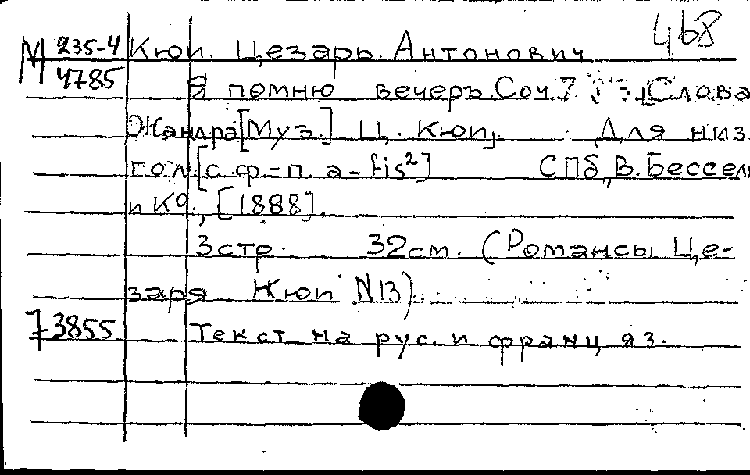 468
М 235-4 Кюи. Цезарь Антонович
4785 Я помню вечеръ Соч. 7 Слова
Жандра [Муз.] Ц. Кюи. Для низ.
гол. [с ф-п. a-fis²] СПб., В. Бессель
и К⁰., [1888].
3 стр. 32 см. (Романсы Це-
заря Кюи N 13)
73855 Текст на рус. и франц. яз.